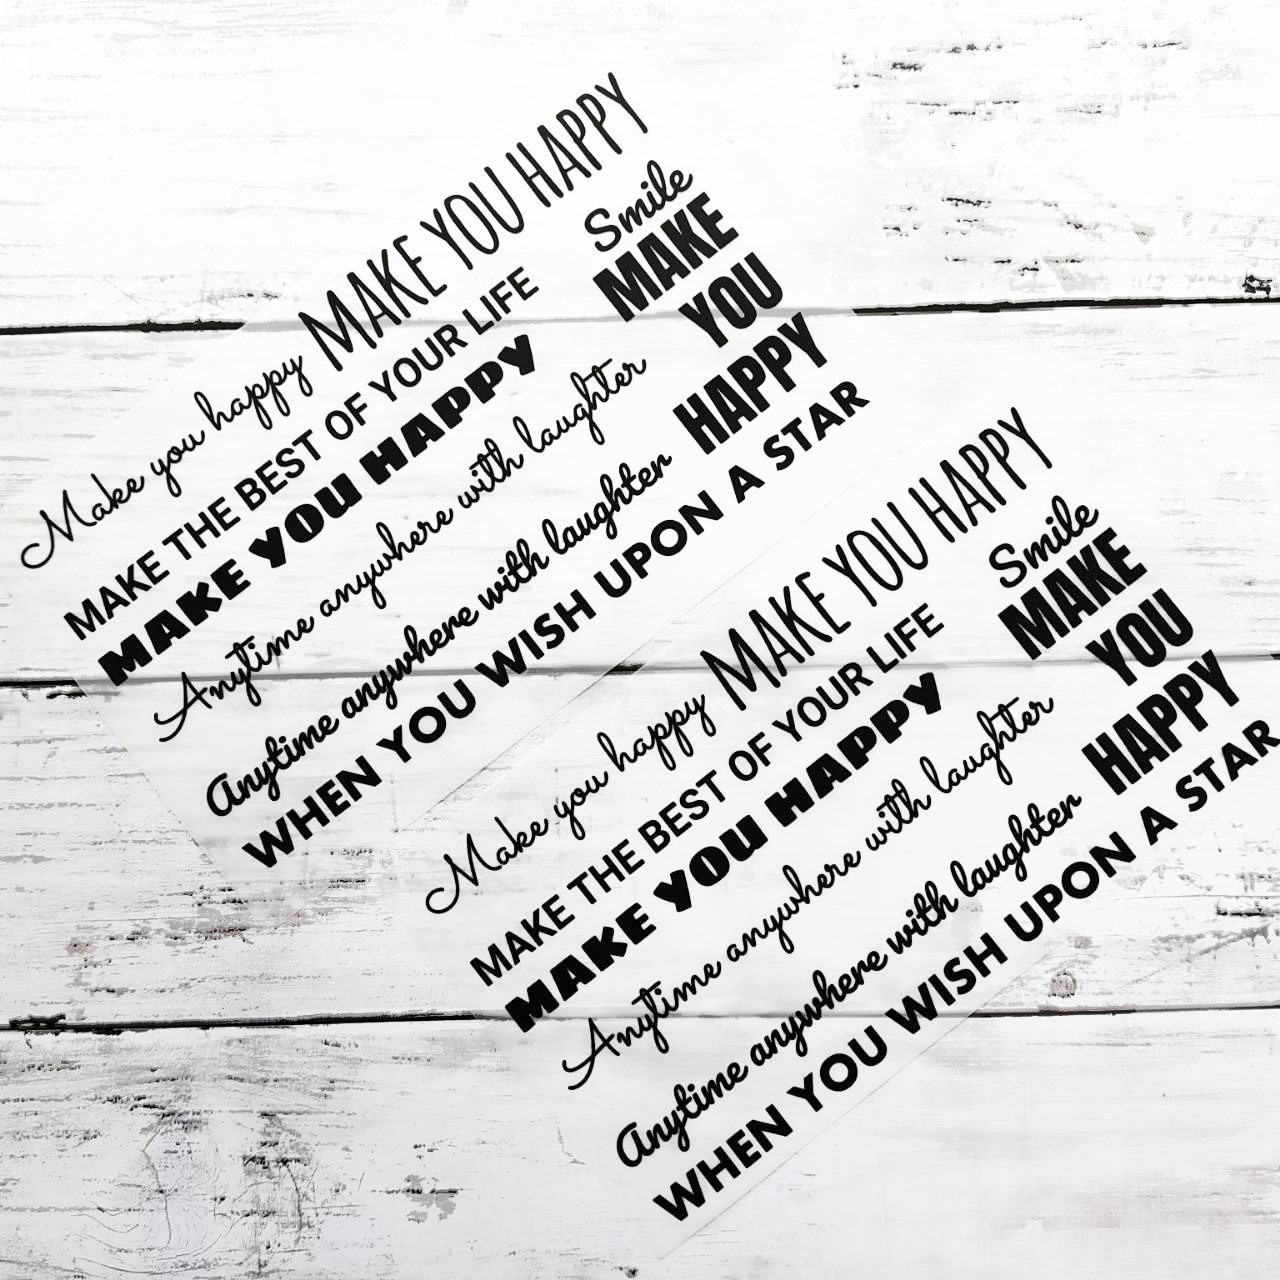 Make you happy MAKE YOU HAPPY
MAKE THE BEST OF YOUR LIFE
Smile
MAKE YOU HAPPY
MAKE
YOU
HAPPY
Anytime anywhere with laughter
Anytime anywhere with laughter
WHEN YOU WISH UPON A STAR
Make you happy MAKE YOU HAPPY
MAKE THE BEST OF YOUR LIFE
Smile
MAKE YOU HAPPY
MAKE
YOU
HAPPY
Anytime anywhere with laughter
Anytime anywhere with laughter
WHEN YOU WISH UPON A STAR